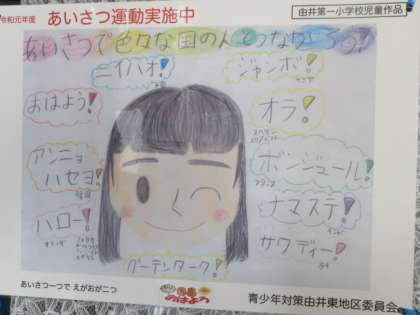 令和元年度
あいさつ運動実施中
由井第一小学校児童作品
あいさつで色々な国の人とつながろう!
ニイハオ!
ジャンボ!
ケニア
おはよう!
オラ!
スペイン
アンニョ
ハセヨ!
韓国
ボンジュール!
フランス
ハロー!
ナマステ!
インド
サワディー!
タイ
グーテンターク!
あいさつ一つで えがおがニつ
おはよう
青少年対策由井東地区委員会